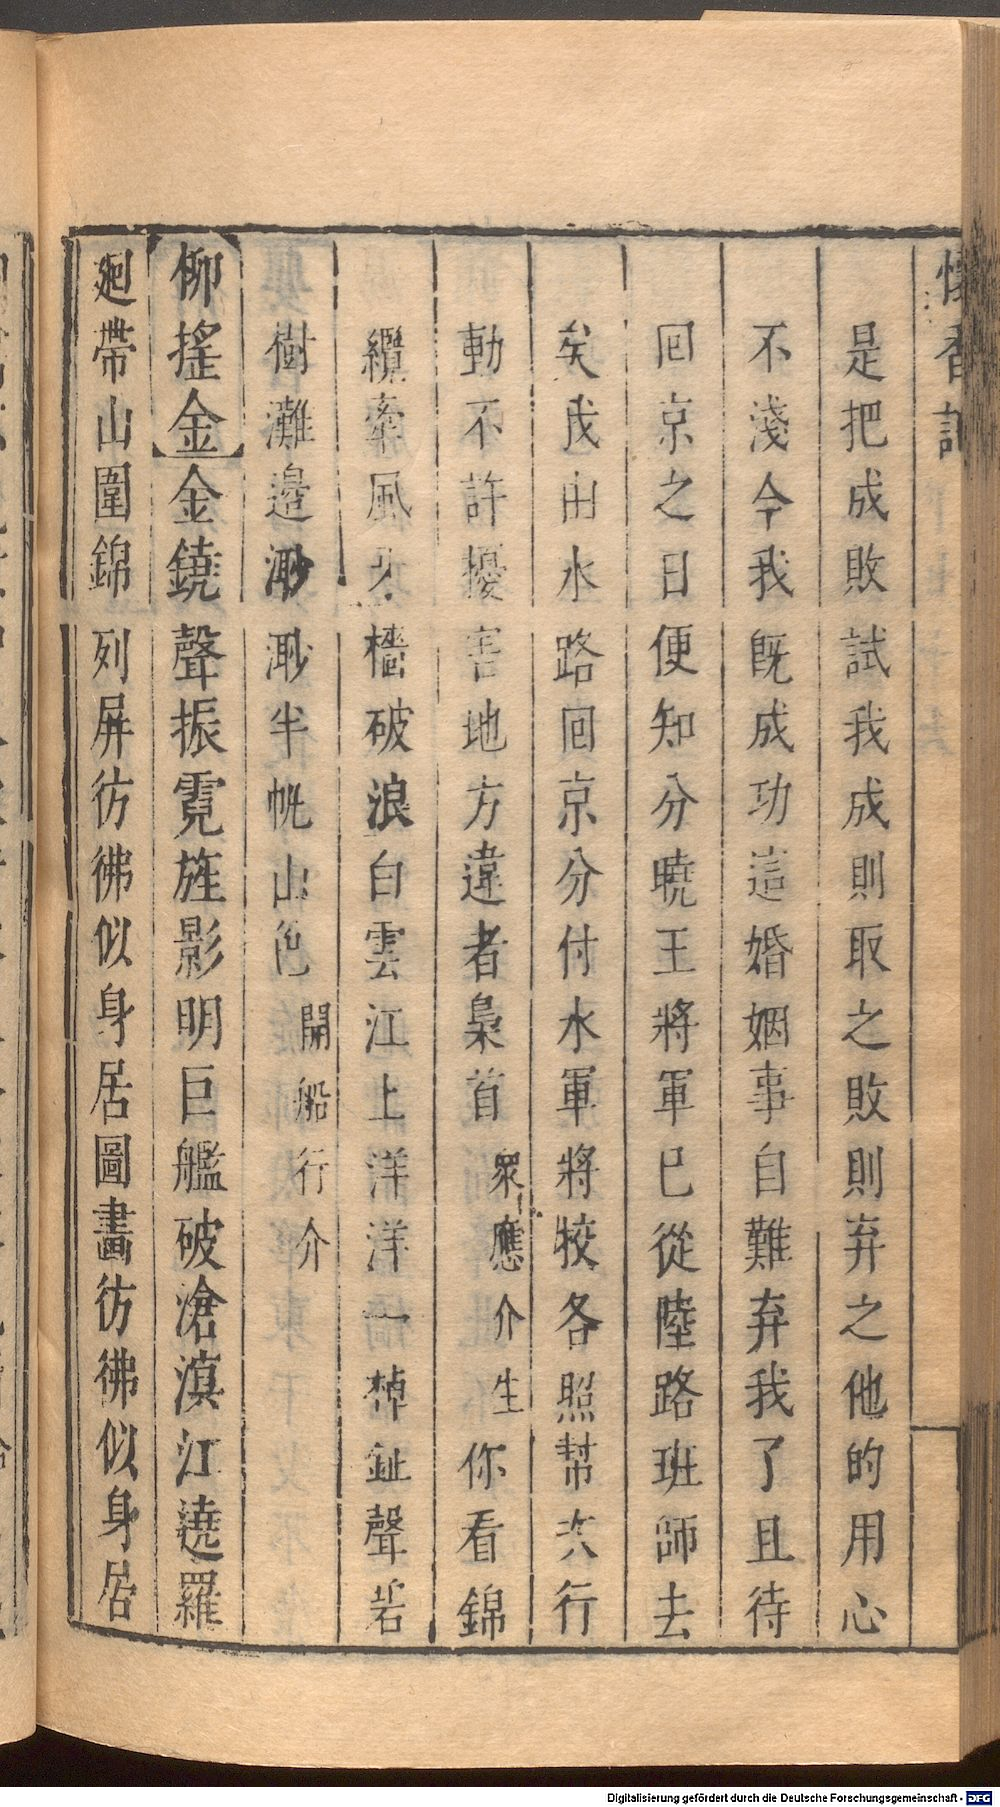 懷香記
是把成敗試我成則取之敗則弃之他的用心
不淺今我既成功這婚姻事自難弃我了且待
回京之日便知分曉王將軍已從陸路班師去
矣我由水路回京分付水軍將校各照幫次行
動不許擾害地方違者梟首衆應介生你看錦
纜牽風 檣破浪白雲江上洋洋一棹鉦聲若
樹灘邉渺渺半帆山色開船行介
柳搖金金鐃聲振霓旌影明巨艦破滄溟江遶羅
廻帶山圍錦列屏彷彿似身居圖畫彷彿似身居
Digitalisierung gefördert durch die Deutsche Forschungsgemeinschaft - DFG